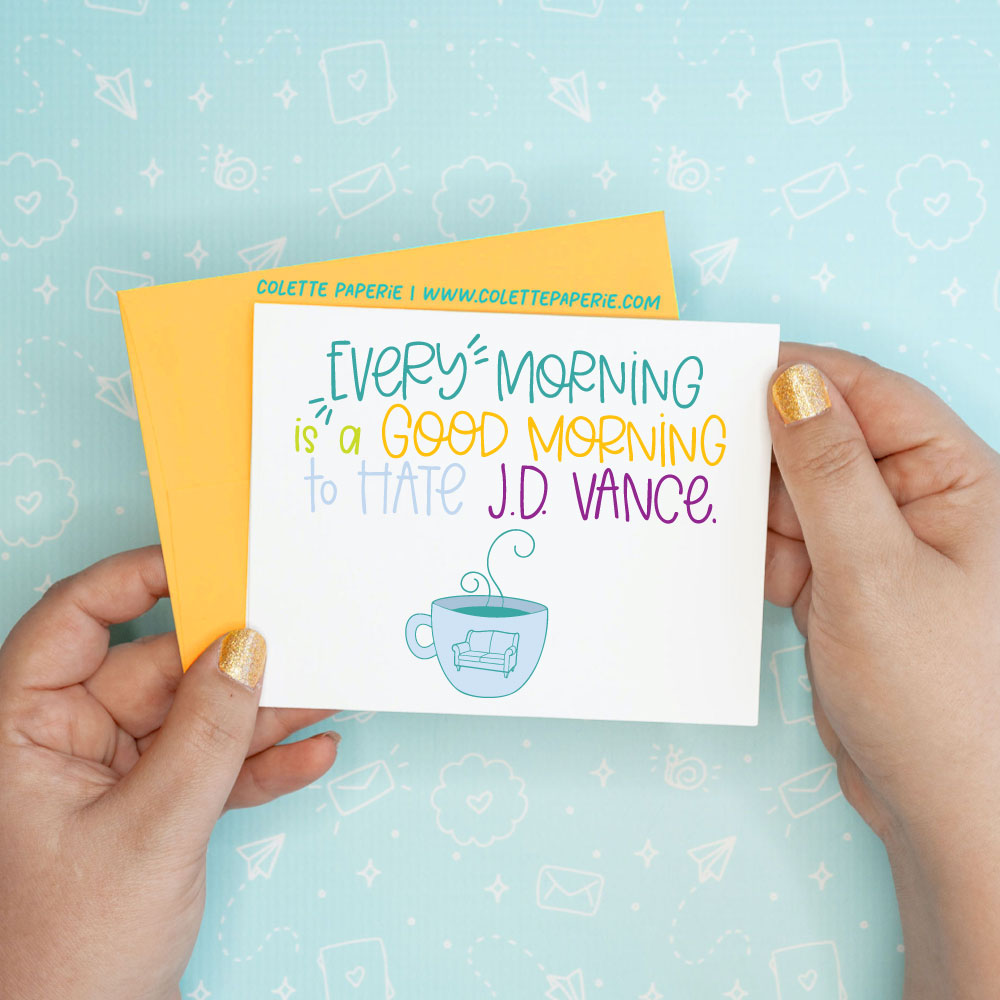 COLETTE PAPERIE | WWW.COLETTEPAPERIE.COM
EVERY MORNING
is a GOOD MORNING
to HATE J.D. VANCE.